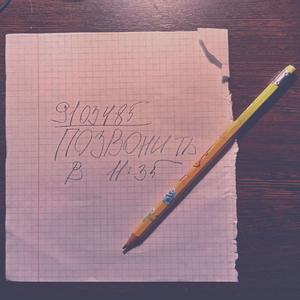 9103485
ПОЗВОНИТЬ
В 11:35